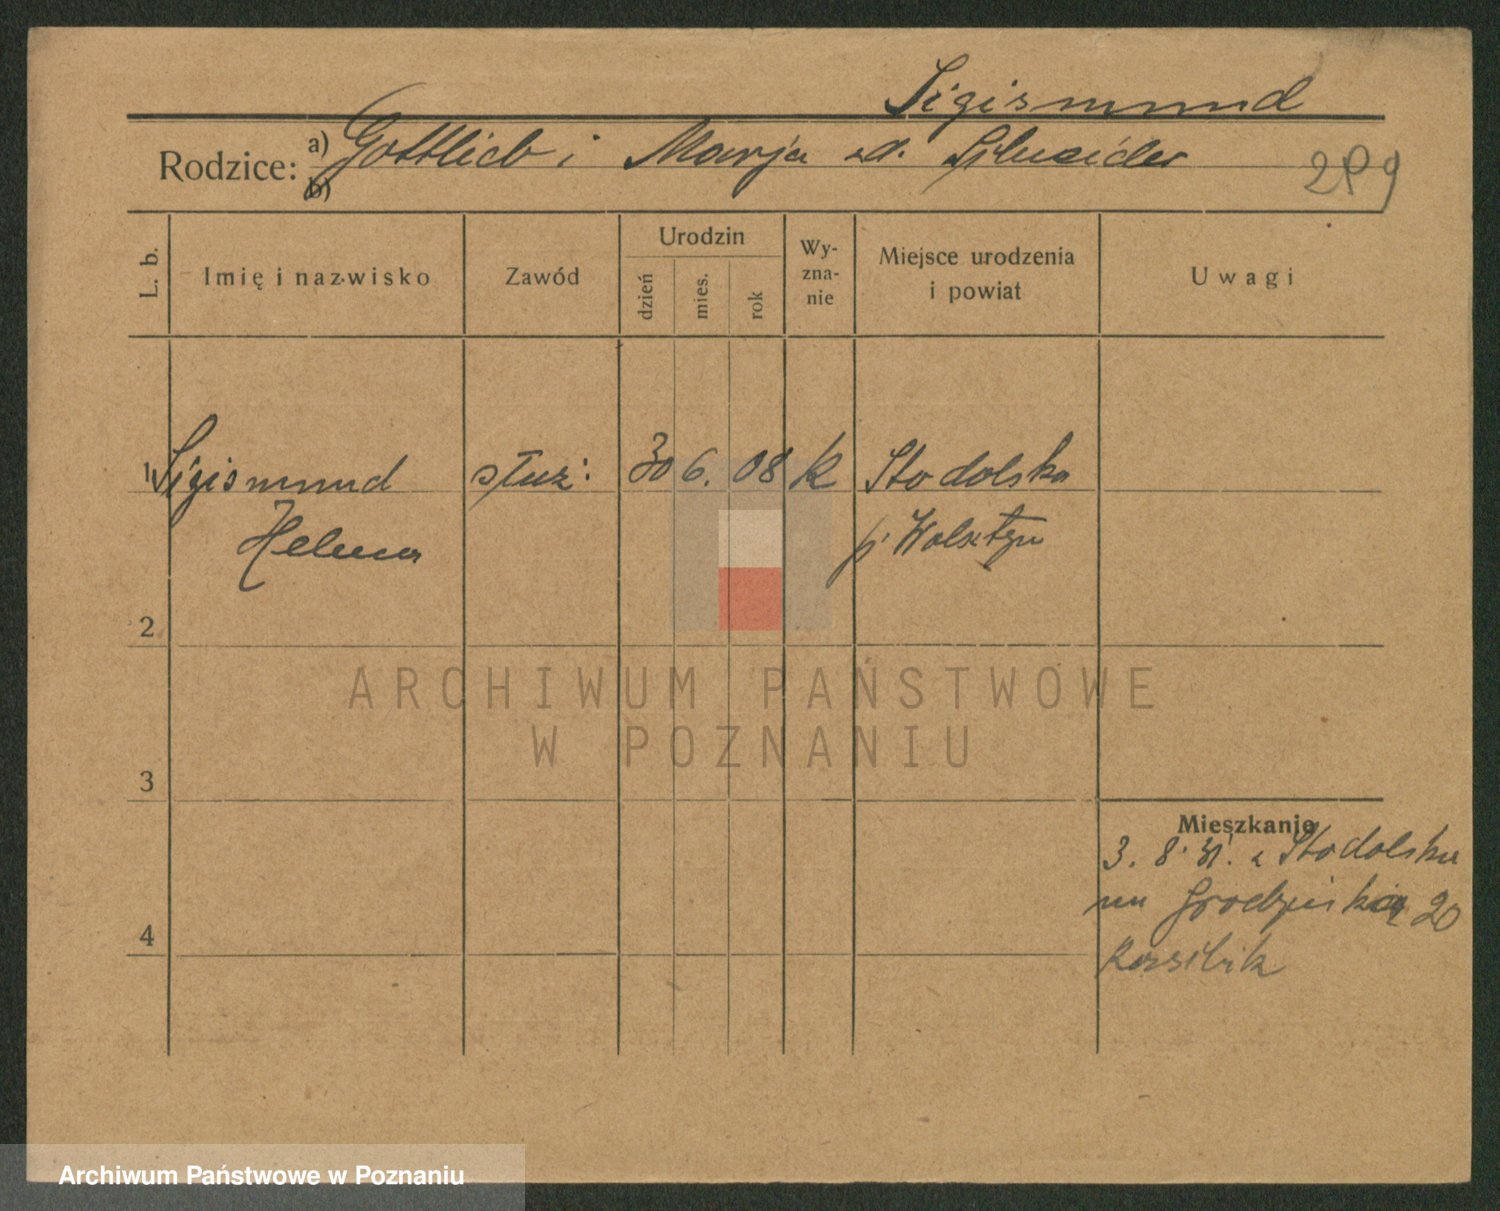 Sigismund
Rodzice: a) Gottlieb i Marja zd. Schneider
b)
289
L. b.
Imię i nazwisko
Zawód
Urodzin
dzień
mies.
rok
Wy-
zna-
nie
Miejsce urodzenia
i powiat
Uwagi
1 Sigismund służ: 30 6. 08 k Stodolsko
Helena p. Wolsztyn
2
ARCHIWUM PAŃSTWOWE
W POZNANIU
3
Mieszkanie
3. 8. 31. z Stodolska
na Grodziska 20
4
Archiwum Państwowe w Poznaniu